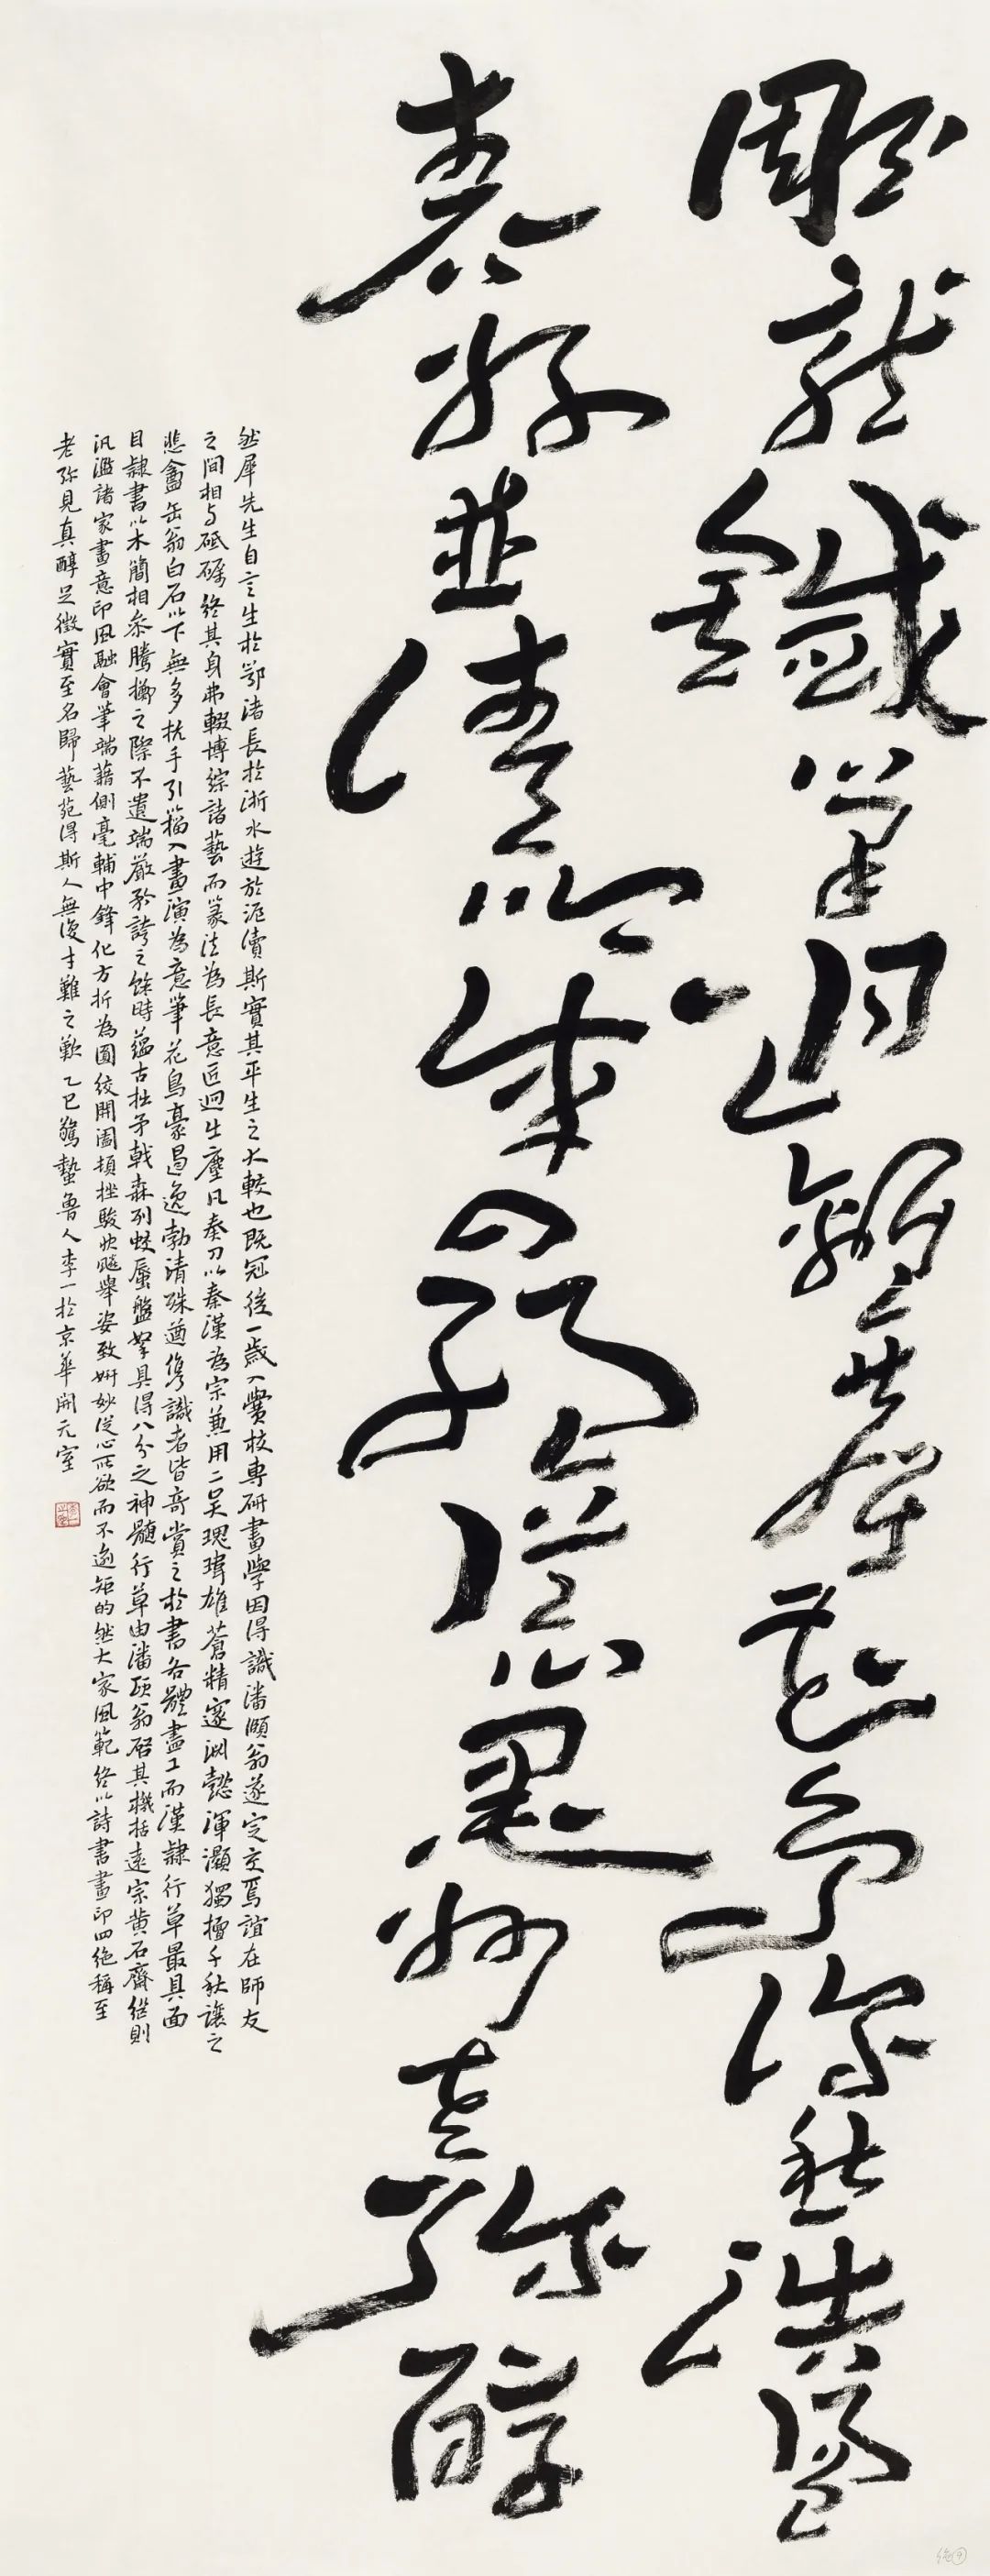 雕龍鐵筆迥無塵花鳥深秋浩蕩
春孫並清以來
老弥醇
然犀先生自言生於鄂渚長於浙水遊於滬瀆斯實其平生之大較也既冠後一歲入黌校專研畫學因得識潘頤翁遂定交焉誼在師友
之間相与砥礪終其身弗輟博綜諸藝而篆法為長意匠迥出塵凡奏刀以秦漢為宗兼用二吳瑰瑋雄蒼精邃淵懿渾灝獨擅千秋讓之
悲盦缶翁白石以下無多抗手引籀入畫演為意筆花鳥豪曷逸勃清殊遒儁識者皆奇賞之於書各體盡工而漢隸行草最具面
目隸書以木簡相參騰擲之際不遺端嚴矜誇之餘時蘊古拙矛戟森列蛟蜃盤拏具得八分之神髓行草由潘頤翁啓其機括遠宗黄石齋繼則
汎濫諸家畫意印風融會筆端藉側毫輔中鋒化方折為圓絞開闔頓挫駿快飈舉姿致妍妙從心所欲而不逾矩的然大家風範終以詩書畫印四絶稱至
老弥見真醇足徵實至名歸藝苑得斯人無復才難之歎 乙巳驚蟄魯人李一於京華開元室